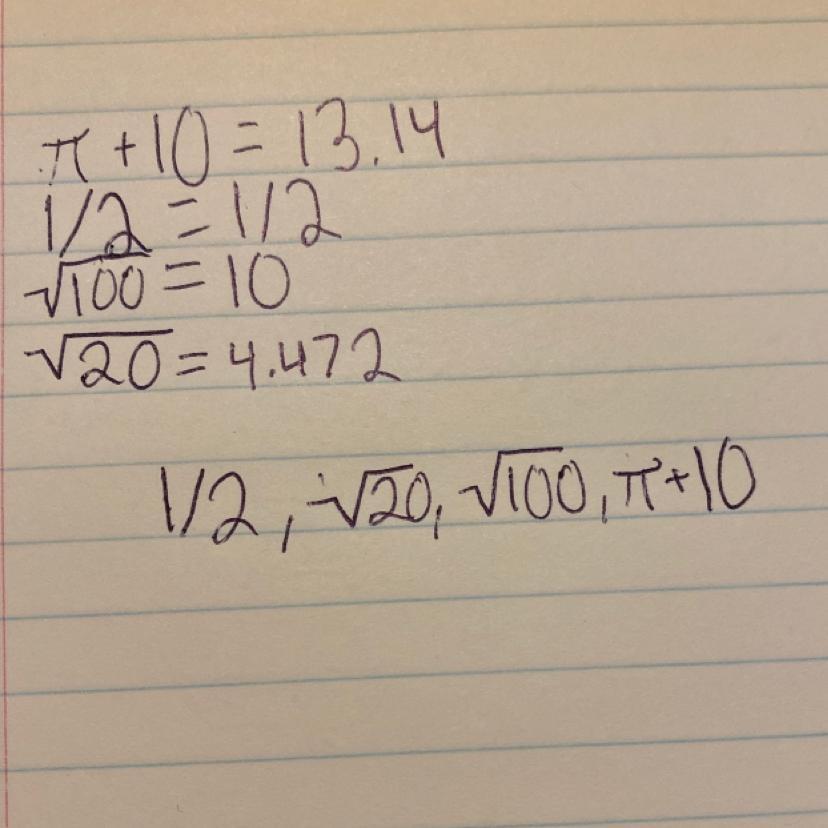 π + 10 = 13.14
1/2 = 1/2
√100 = 10
√20 = 4.472
1/2, √20, √100, π+10